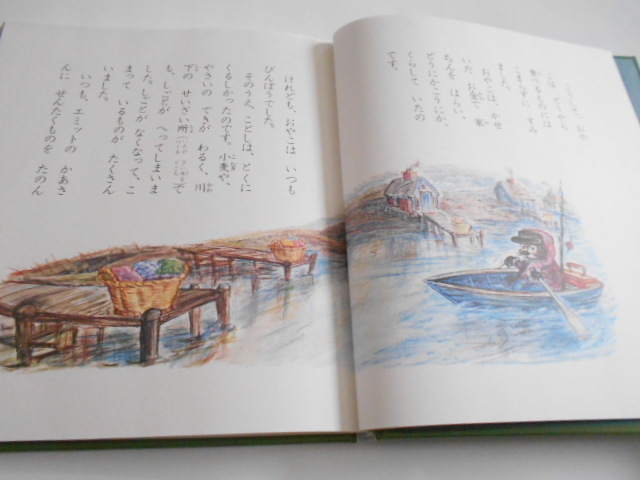 こうして、おや
こは、どうやら
食べるものには
こまらずに すみ
ました。
おやこは、かせ
いだ お金で、家
ちんを はらい、
どうにかこうにか、
くらして いたの
です。
けれども、おやこは いつも
びんぼうでした。
そのうえ、ことしは、とくに
くるしかったのです。小麦や、
やさいの できが わるく、川
下の せいざい所 で
も、しごとが へってしまいま
した。しごとが なくなって、こ
まって いるものが たくさん
いました。
いつも、エミットの かあさ
んに せんたくものを たのん